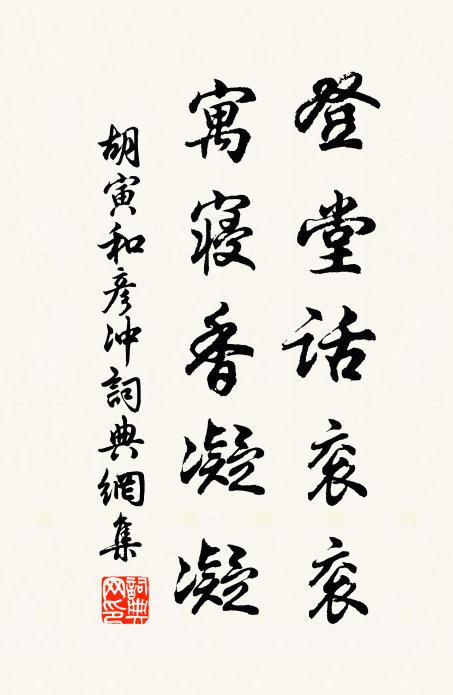 登堂話衮衮
寓寝香凝凝
胡寅和彦冲詞典網集
詞典網印